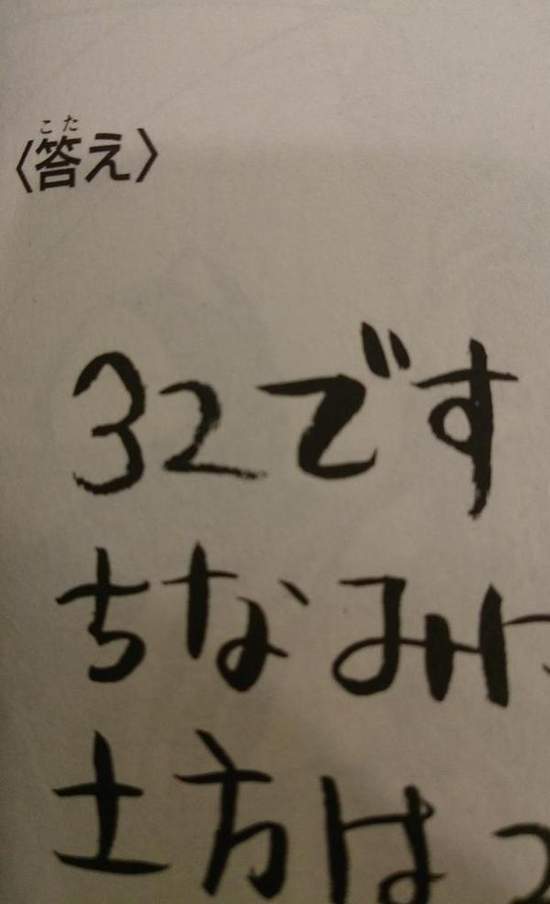 こた
〈答え〉
32です
ちなみに
土方は2